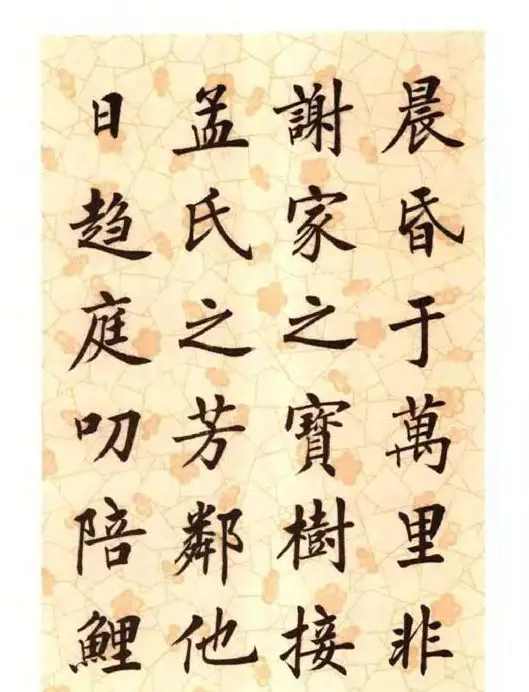 晨昏于萬里非
謝家之寶樹接
孟氏之芳鄰他
日趋庭叨陪鯉